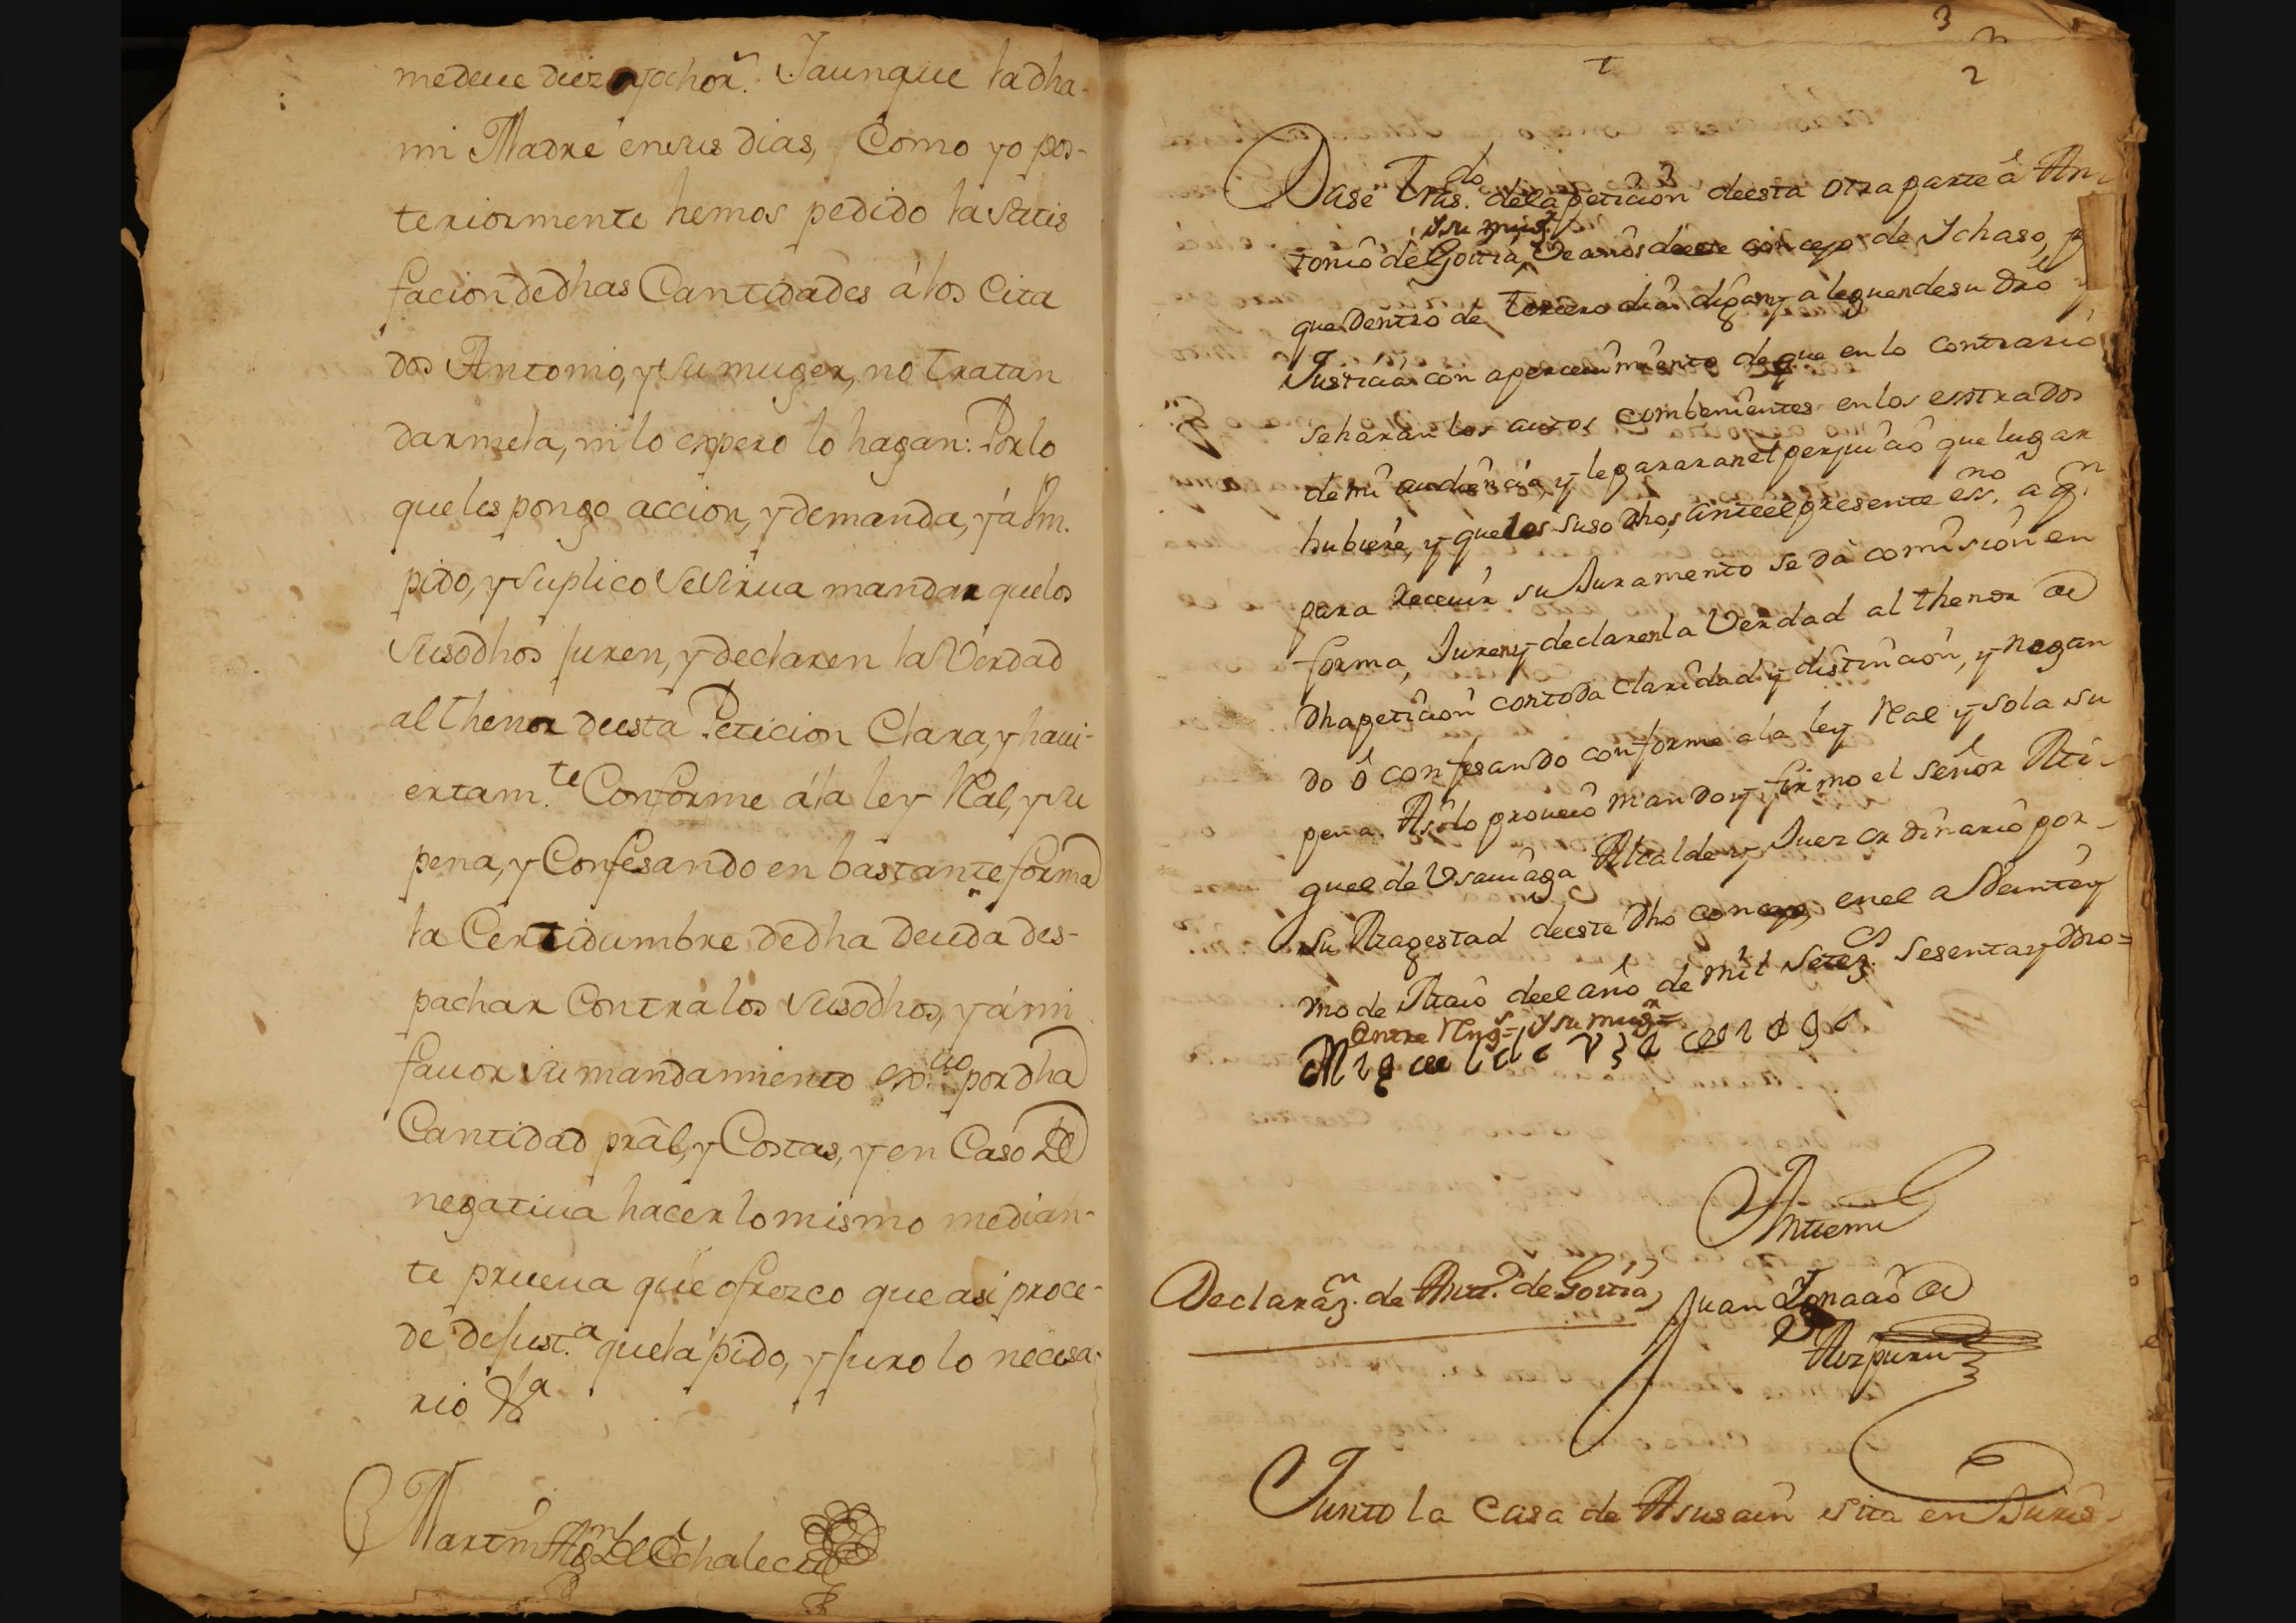 me deue diez y ocho rˢ. Jaunque la dha
mi Madre en sus dias, Como yo pos-
teriormente hemos pedido la satis
facion de dhas Cantidades á los Cita
dos Antonio, y su muger, no tratan
darmela, ni lo espero lo hagan: Por lo
que les pongo accion, y demanda, y á Vm.
pido, y suplico se sirua mandar que los
susodhos juren, y declaren la Verdad
al thenor de esta Peticion Clara, y haui-
ertam.te Conforme á la ley Ral, y su
pena, y Confesando en bastante forma
la Certidumbre de dha deuda des-
pachar Contra los susodhos, y á mi
fauor su mandamiento exo.uo por dha
Cantidad pral, y Costas, y en Caso De
negatiua hacer lo mismo median-
te prueua que ofrezco que asi proce-
de de just.a que la pido, y juro lo necesa-
rio &a
Martin Ang.l De Echalecu
3
2
Dase Tras.do de la peticion de esta otra parte â An-
y su mug.r
tonio de Goitia, Veanos de este concejo de Ichaso, p
que Dentro de tercero dia digan y aleguen de su Dro y
Justicia con aperceuimiento de que en lo contrario
se haran los autos combenientes en los estrados
de mi audiencia, y le pararan el perjuicio que lugar
hubiere, y que los suso dhos, ante el presente es.no a q.n
para receuir su Juramento se dà comision en
forma, Juren y declaren la Verdad al thenor de
dha peticion con toda Claridad y distincion, y Negan
do ô confesando conforme a la ley Ral y sola su
pena. Asi lo proueio mando y firmo el señor Mi-
guel de Vsauiaga Alcalde y Juez ordinario por
su Magestad de este Dho concejo, en el a Veinte y
mo de Maio de el año de mil setez.s sesenta y Dos=
Entre Rng.s=, y su mug.r=
Miguel de Vsauiaga
Antemi
Declaraz.n de Ant.o de Goitia,
Juan Ignacio de
Aizpuru
Junto la Casa de Asusain sita en Juris-